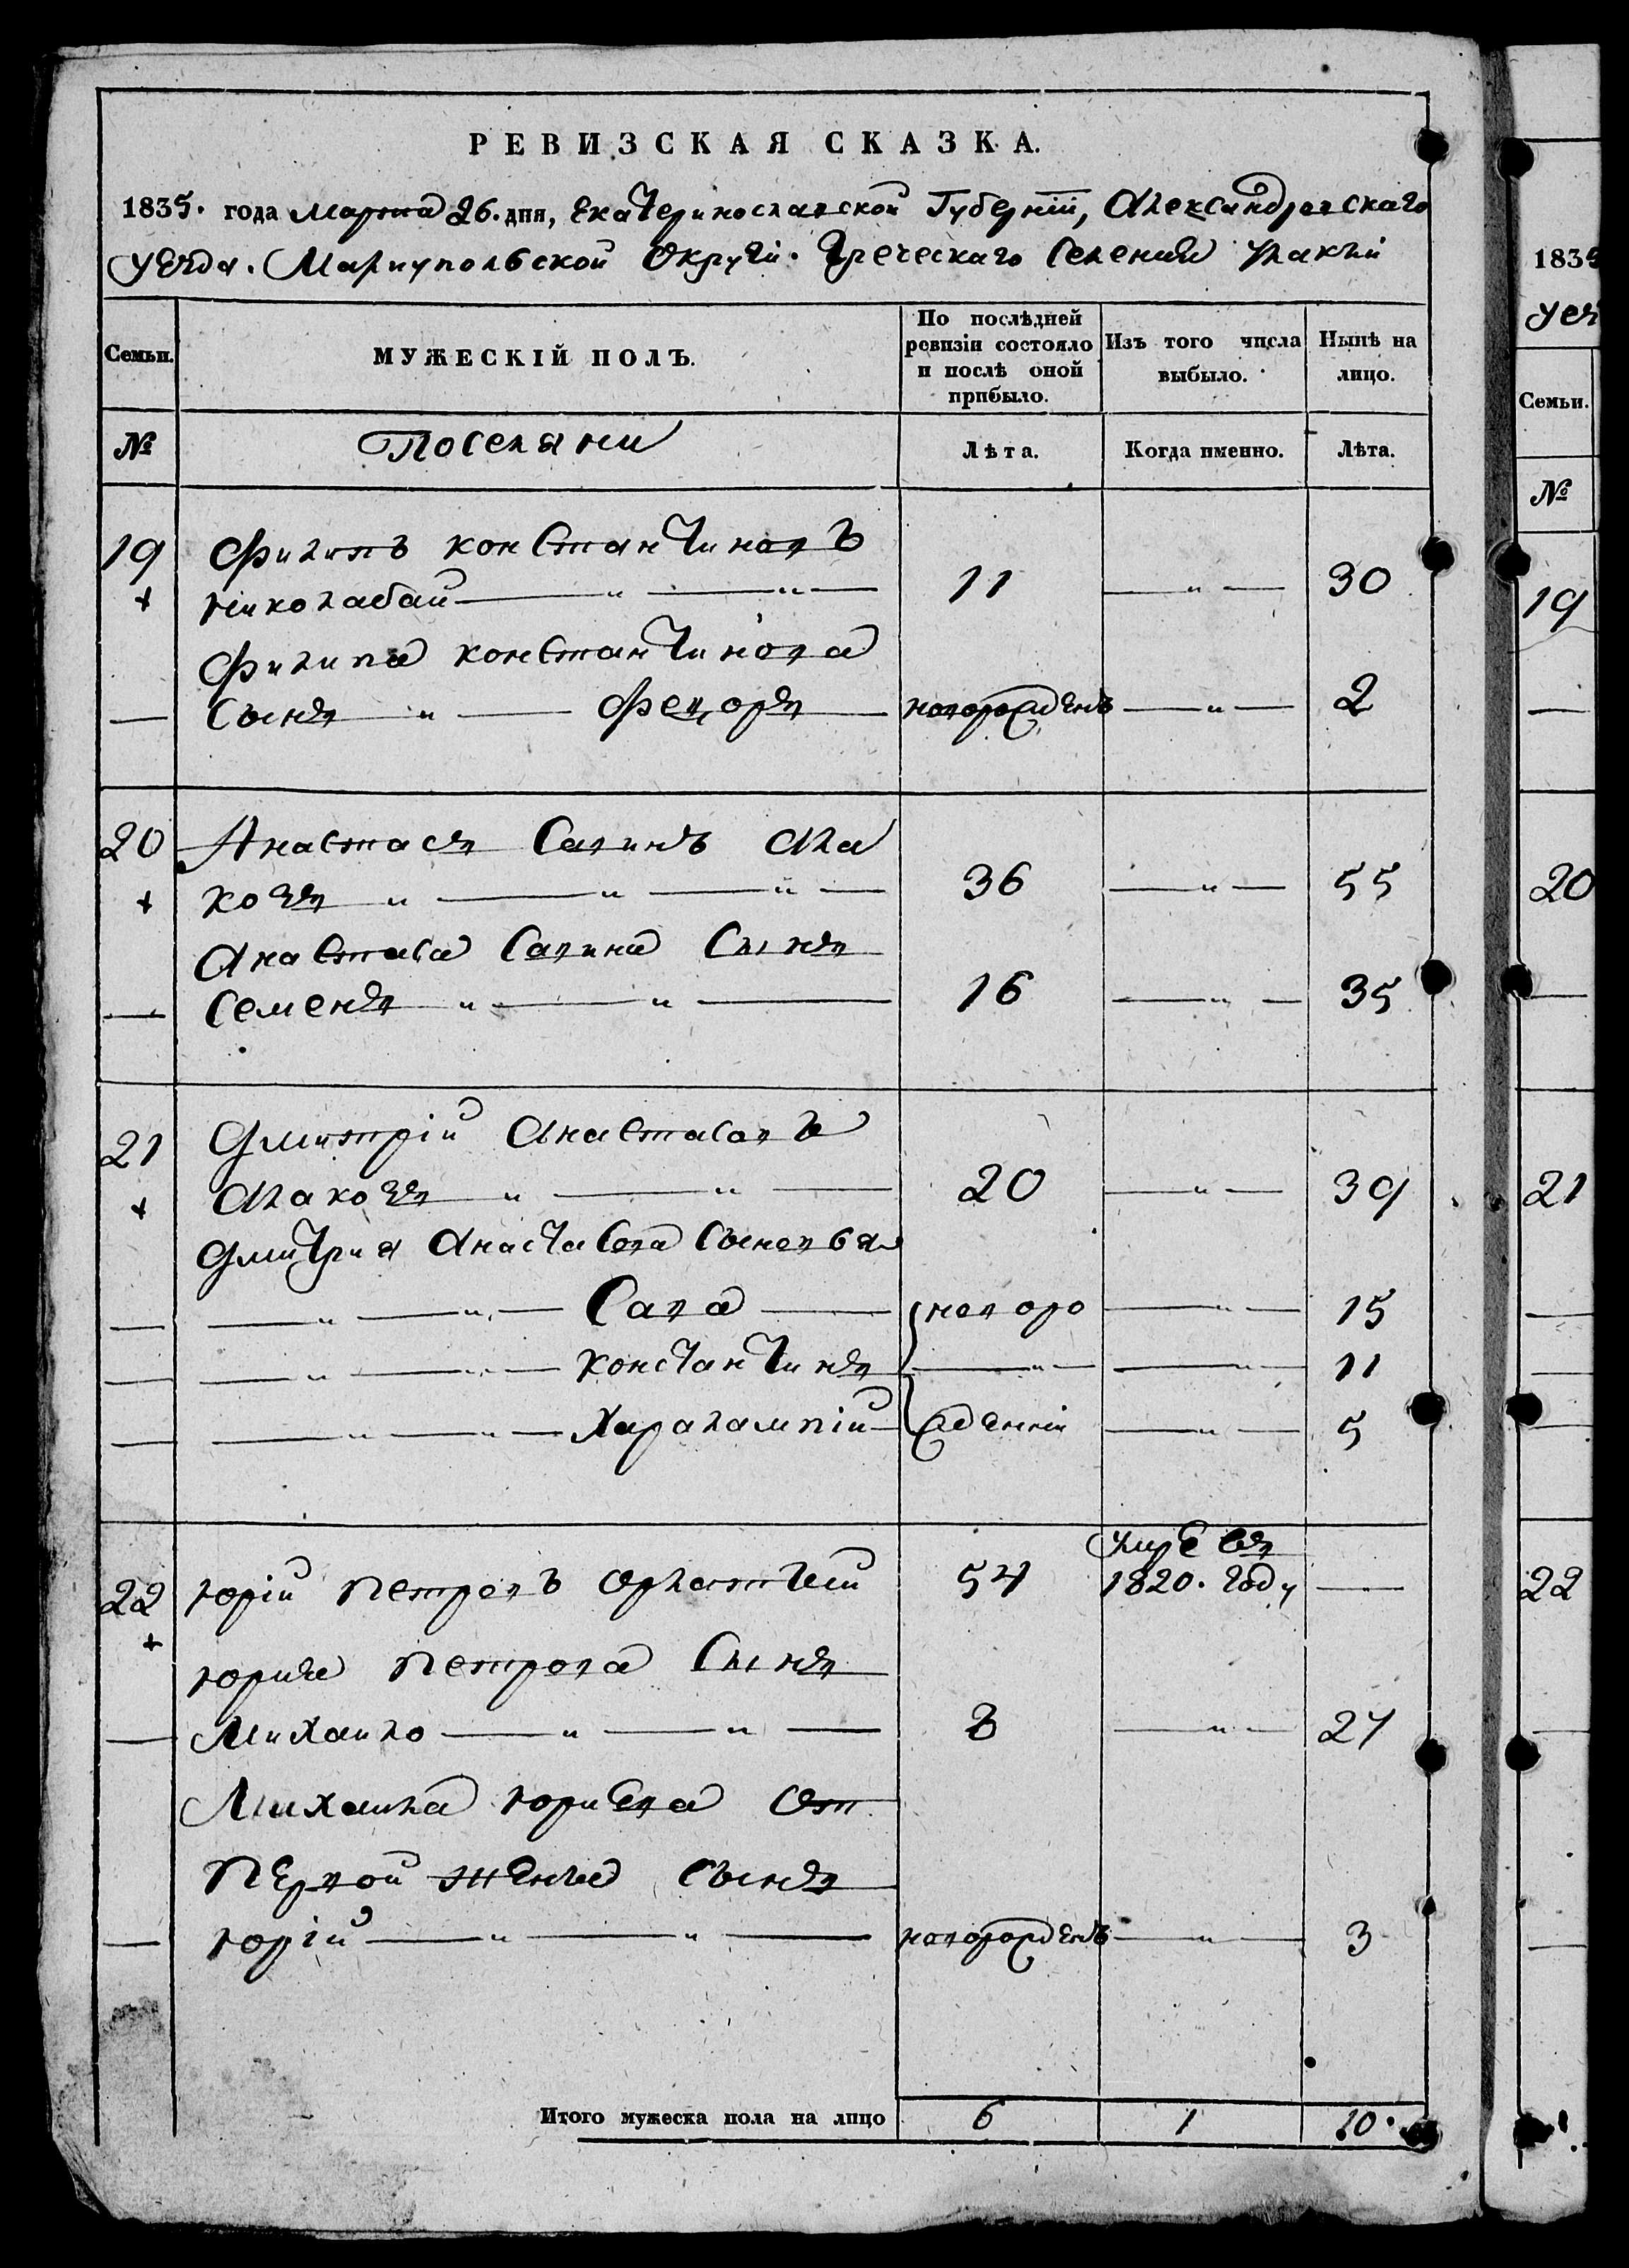 РЕВИЗСКАЯ СКАЗКА.
1835. года Марта 26. дня, Екатеринославской Губернїи, Александровскаго
уезда. Мариупольской Округи. Греческаго Селения Улаклы
Семьи.
МУЖЕСКІЙ ПОЛЪ.
По послѣдней ревизіи состояло и послѣ оной прибыло.
Изъ того числа выбыло.
Нынѣ на лицо.
№
Поселяни
Лѣта.
Когда именно.
Лѣта.
19 Филипъ константиновъ
николабай 11 30
Филипа константинова
Сынъ Федоръ новорожденъ 2
20 Анастасъ Савинъ
36 55
Анастаса Савина Сынъ
Семенъ 16 35
21 Дмитрій Анастасовъ
20 39
Дмитрия Анастасова Сыновья
Сава новоро 15
Константинъ 11
Харалампій жденніи 5
22 юрій Петровъ 54 умре въ 1820. году
юрия Петрова Сынъ
Михаило 8 27
Михаила юриева От
Первой жены сынъ
юрій новорожденъ 3
Итого мужеска пола на лицо 6 1 10.
1835
уез
Семьи.
№
19
20
21
22